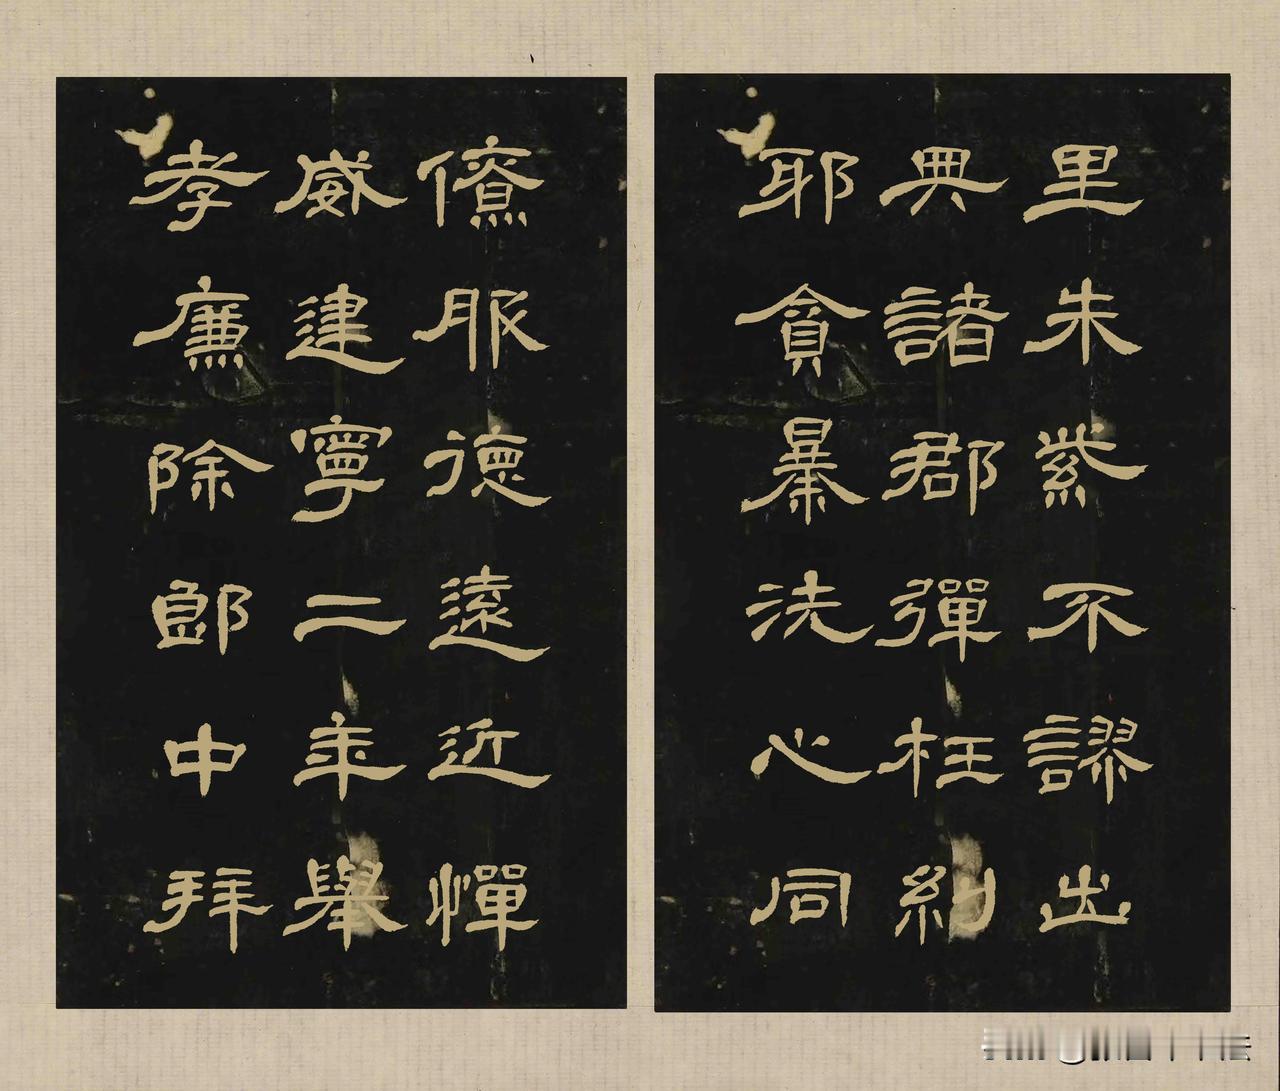 里朱紫不謬出
典諸郡彈枉糾
耶貪暴洗心同
僚服德遠近憚
威建寧二年舉
孝廉除郎中拜